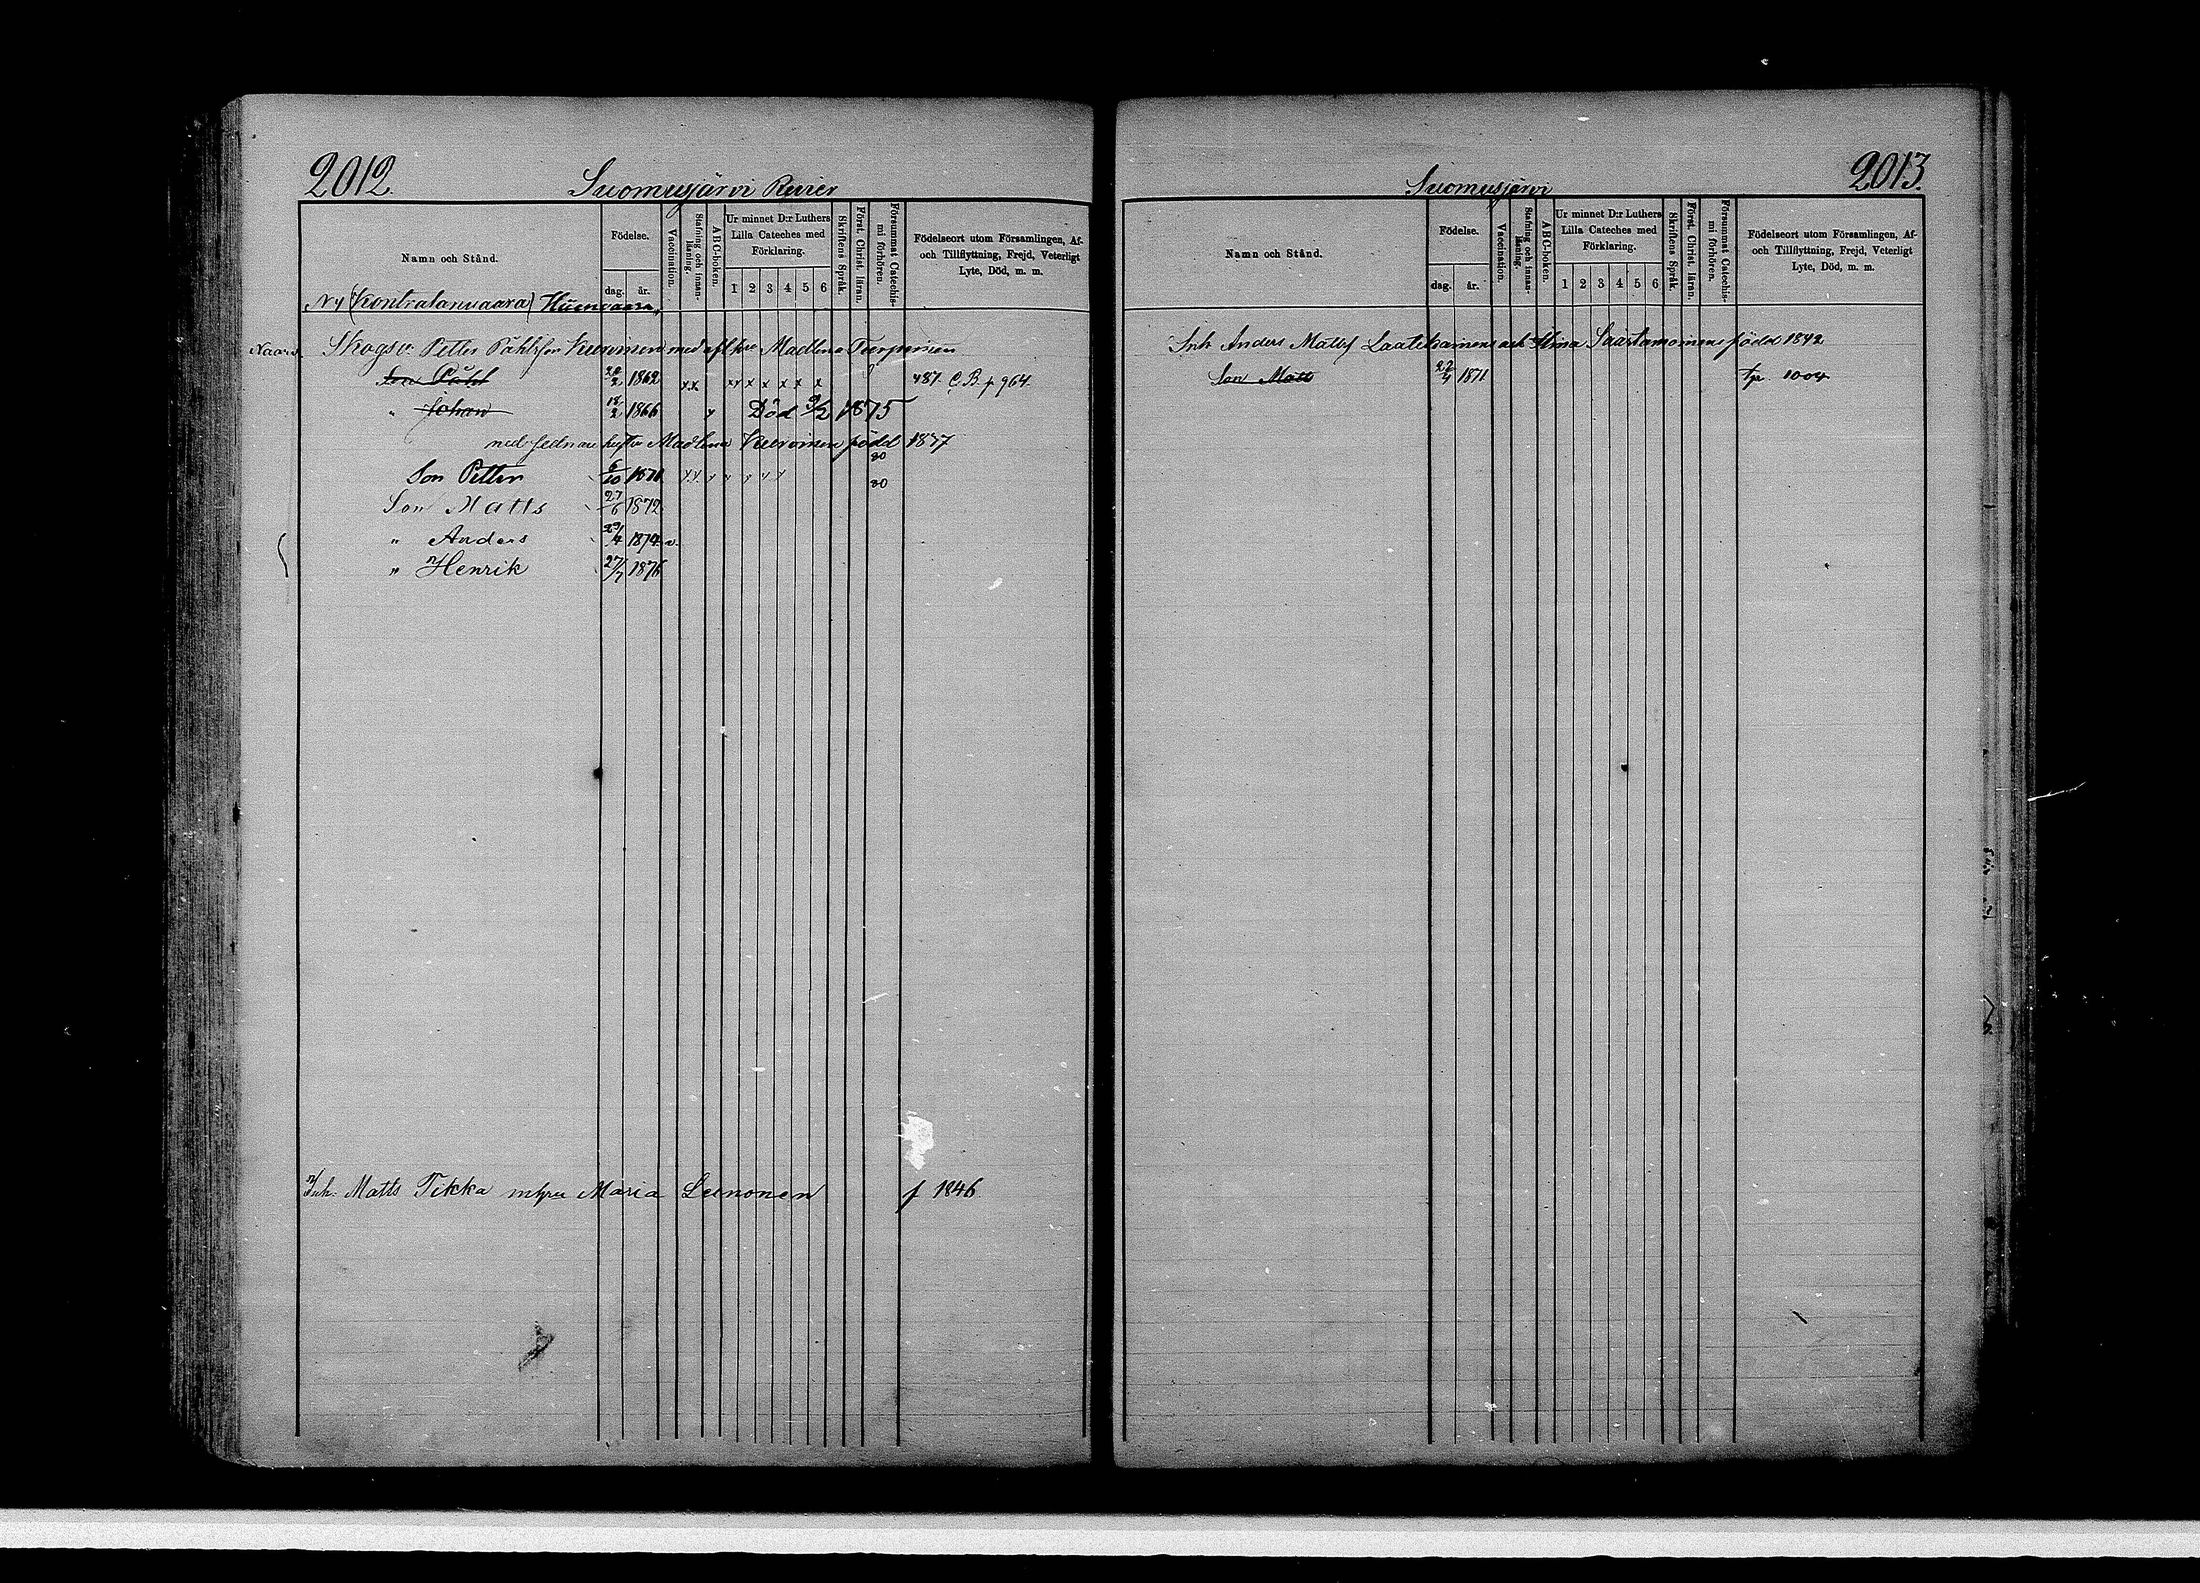 2012.
Suomusjärvi Revier
Namn och Stånd.
Födelse.
dag. år.
Vaccination.
Stafning och innan-läsning.
ABC-boken.
Ur minnet D:r Luthers Lilla Cateches med Förklaring.
1 2 3 4 5 6
Skriftens Språk.
Först. Christ. läran.
Försummat Catechis-mi förhören.
Födelseort utom Församlingen, Af- och Tillflyttning, Frejd, Veterligt Lyte, Död, m. m.
N 4 (Kontratanvaara)
Skogsv. Petter Påhlsson med Madlena Turpeinen
Son Påhl 1862 xx xx x x x x x 487. C.B. p 964
" Johan 18/2 1866 Död 9/2 1875
Madlena född 1847
Son Petter 6/10 30
Son Matts 27/6 1872 30
" Anders 1874 v.
" Henrik 27/7 1876
Inh. Matts Tikka Maria Leinonen f 1846
Suomusjärvi
2013.
Namn och Stånd.
Födelse.
dag. år.
Vaccination.
Stafning och innan-läsning.
ABC-boken.
Ur minnet D:r Luthers Lilla Cateches med Förklaring.
1 2 3 4 5 6
Skriftens Språk.
Först. Christ. läran.
Försummat Catechis-mi förhören.
Födelseort utom Församlingen, Af- och Tillflyttning, Frejd, Veterligt Lyte, Död, m. m.
Inh Anders Matts Laatikainens och Saastamoinens född 1842
Son Matts 22/4 1871 1004